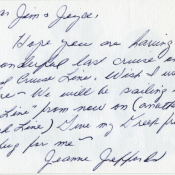 Jim & Joyce,
Hope you are having
wonderful last cruise on
Cruise Line. Wish I w
We will be sailing
Line" from now on (anoth
Line) Give my
for me ~
Jeanne Jefford